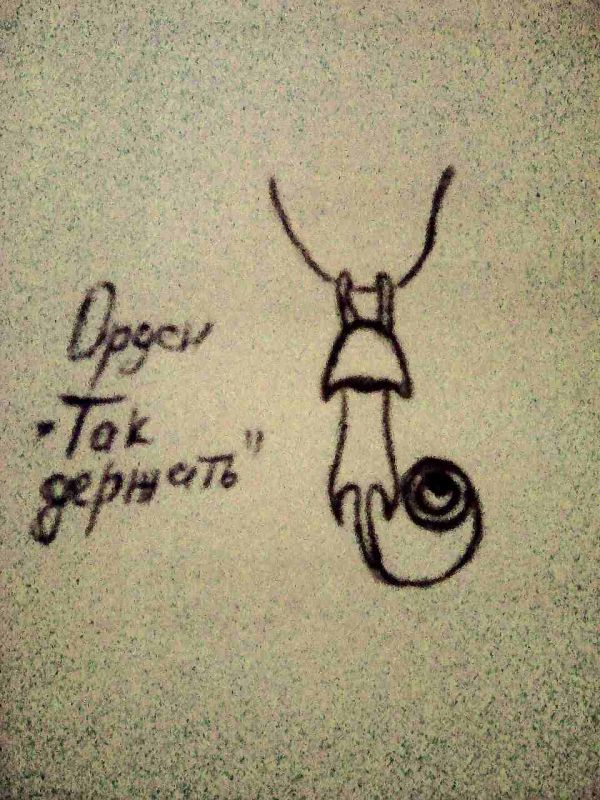 Орден
"Так
держать"